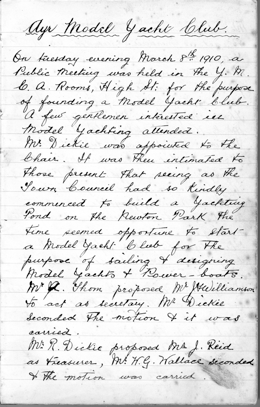 Ayr Model Yacht Club.
On tuesday evening March 8th 1910, a
Public Meeting was held in the Y. M.
C. A Rooms, High St. for the purpose
of founding a Model Yacht Club.
A few gentlemen intrested in
Model Yachting attended.
Mr Dickie was appointed to the
Chair. It was then intimated to
those present that seeing as the
Town Council had so kindly
commenced to build a Yachting
Pond on the Newton Park the
time seemed opportune to start
a Model Yacht Club for the
purpose of sailing & designing
Model Yachts & Power-boats.
Mr Thom proposed Mr J Williamson
to act as secretary. Mr Dickie
seconded the motion & it was
carried.
Mr R. Dickie proposed Mr J. Reid
as treasurer, Mr H. G. Wallace seconded
& the motion was carried.